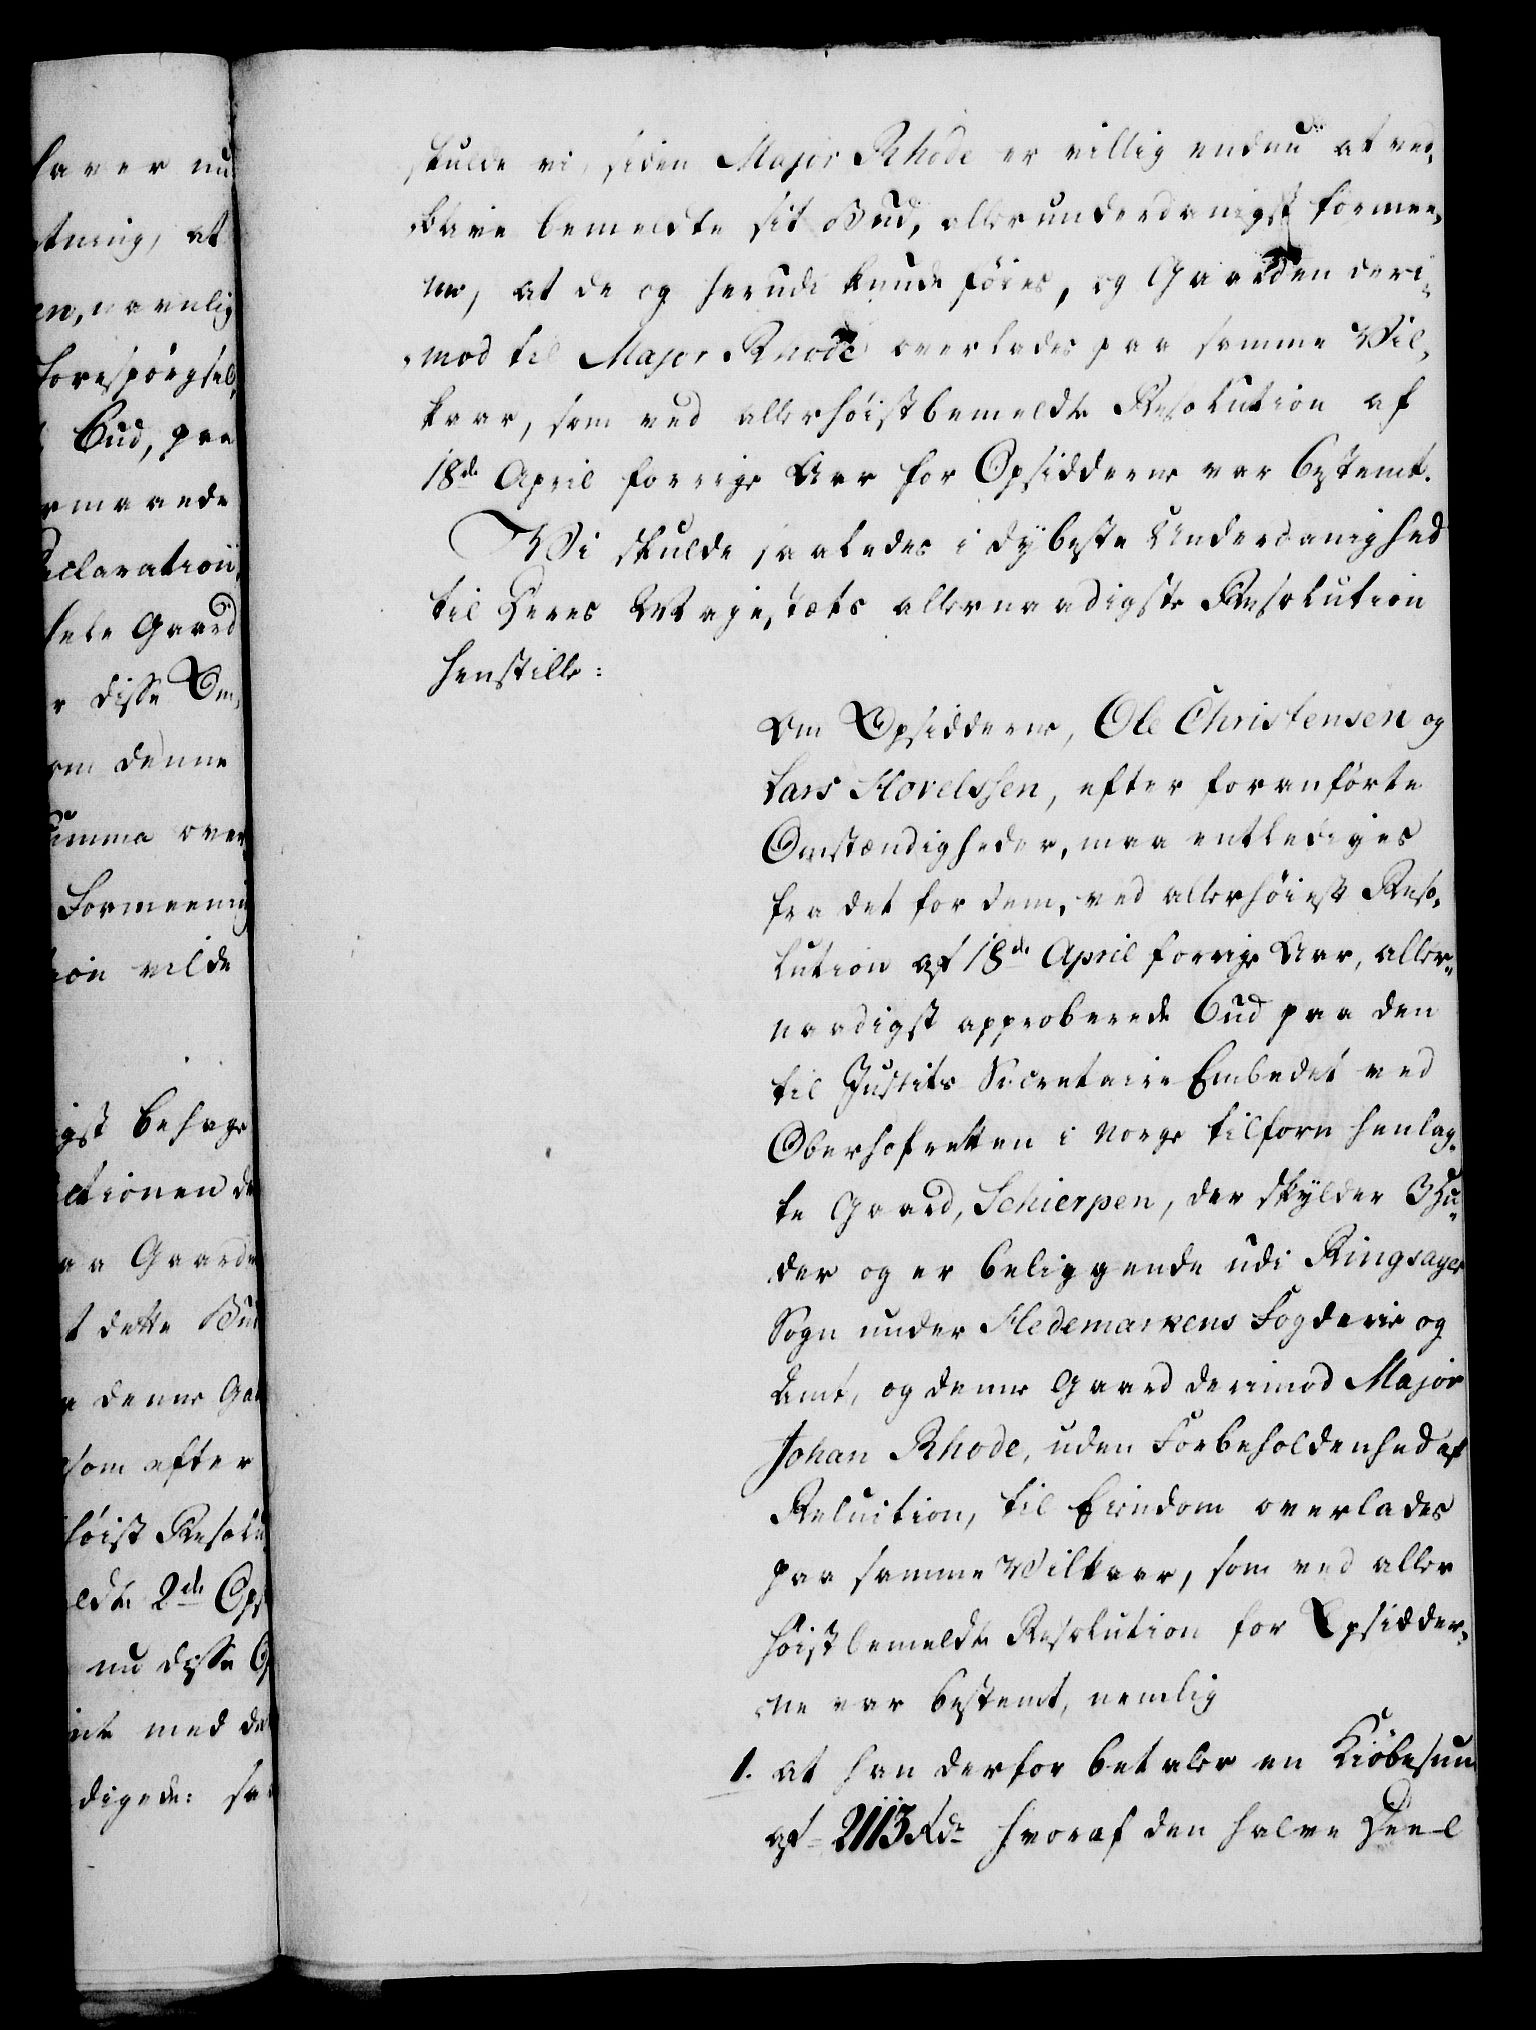 haver nu
tning, at
en, navnlig
Forespørgsel,
Bud, paa
rmaaede
eclaration,
hele Gaard
r disse Om,
om denne
Summa over
Formeening
ion vilde
igst behage
ctionen de
aa Gaarde
t dette Bud
e denne Gaa
som efter
høist Resolu
eldte 2de Ops
nu disse O
nte med de
digede: sa
skulde vi, siden Major Rhode er villig endnu at ved,
blive bemeldte sit Bud, allerunderdanigst formee,
ne, at de og herudi kunde føies, og Gaarden deri,
mod til Major Rhode overlades paa samme Vil,
kaar, som ved allerhøistbemeldte Resolution af
18de April forrige Aar for Opsidderne var bestemt.
Vi skulde saaledes i dybeste Underdanighed
til Deres Majestæts allernaadigste Resolution
henstille:
Om Opsidderne, Ole Christensen og
Lars Hovelssen, efter foranførte
Omstændigheder, maa entlediges
fra det for dem, ved allerhøieste Reso,
lution af 18de April forrige Aar, aller,,
naadigst approberede Bud paa den
til Justits Secretaire Embedet ved
Oberhofretten i Norge tilforn henlag,
te Gaard, Schierpen, der skylder 3 Hu,,
der og er beliggende udi Ringsager
Sogn under Hedemarkens Fogderie og
Amt, og denne Gaard derimod Major
Johan Rhode, uden Forbeholdenhed af
Reluition, til Eiendom overlades
paa samme Vilkaar, som ved aller
høistbemeldte Resolution for Opsidder,
ne var bestemt, nemlig
1. at han derfor betaler en Kiøbesum
af 2113 Rdr hvoraf den halve Deel